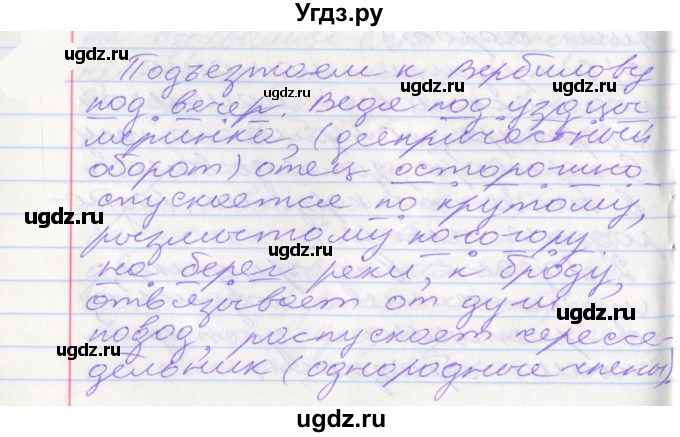 Угдз.ру
Подъезжаем к Вербилову
под вечер. Ведя под уздцы
меринка, (деепричастный
оборот) отец осторожно
спускается по крутому,
размытому косогору
на берег реки, к броду,
отвязывает от дуги
повод, распускает черессе-
дельник (однородные члены).
ugdz.ru
ugdz.ru
ugdz.ru
ugdz.ru
ugdz.ru
ugdz.ru
ugdz.ru
ugdz.ru
ugdz.ru
ugdz.ru
ugdz.ru